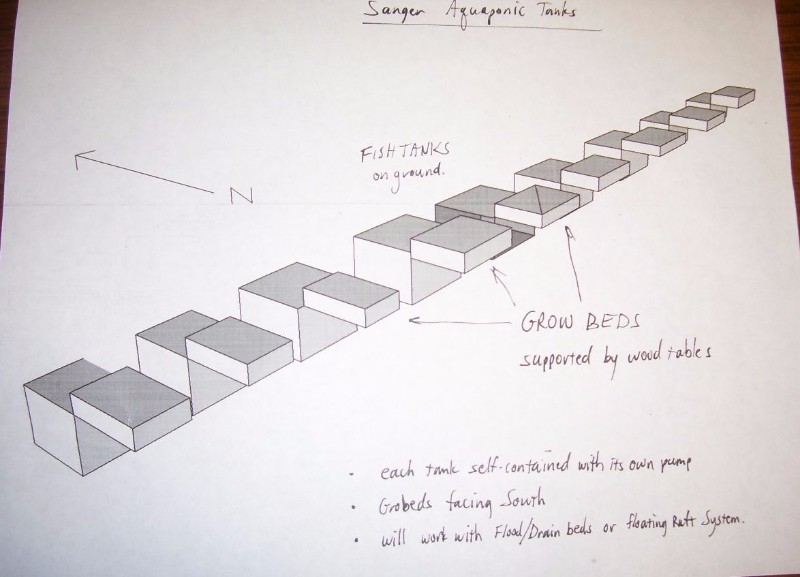 Sanger Aquaponic Tanks
FISH TANKS
on ground.
N
GROW BEDS
supported by wood tables
• each tank self-contained with its own pump
• Grobeds facing South
• will work with Flood/Drain beds or floating Raft System.